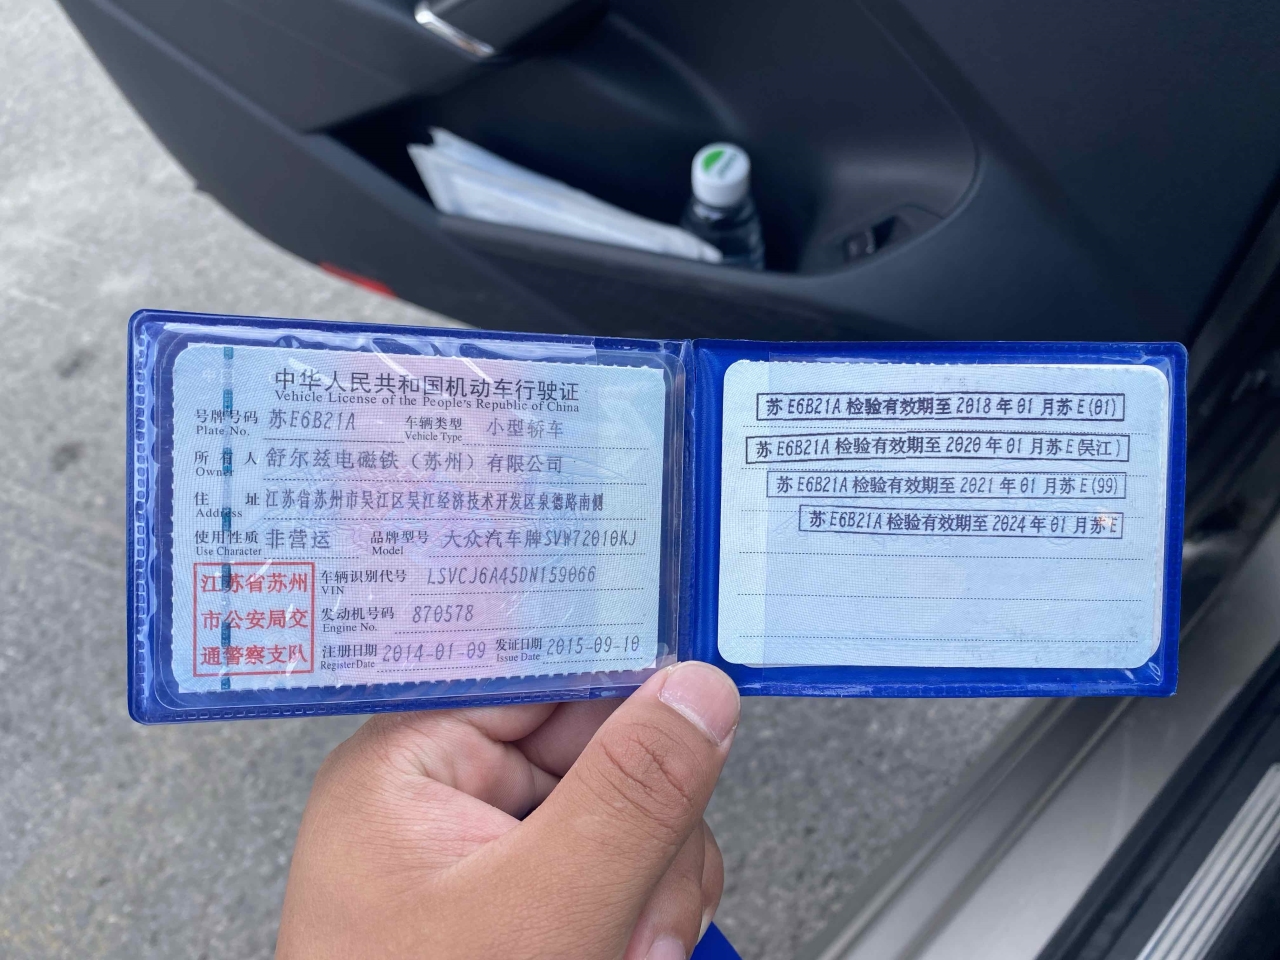 中华人民共和国机动车行驶证
Vehicle License of the People's Republic of China
号牌号码 苏E6B21A 车辆类型 小型轿车
Plate No. Vehicle Type
所有人 舒尔兹电磁铁（苏州）有限公司
Owner
住址 江苏省苏州市吴江区吴江经济技术开发区泉德路南侧
Address
使用性质 非营运 品牌型号 大众汽车牌SVW72010KJ
Use Character Model
江苏省苏州
市公安局交
通警察支队
车辆识别代号 LSVCJ6A45DN159066
VIN
发动机号码 870578
Engine No.
注册日期 2014-01-09 发证日期 2015-09-10
Register Date Issue Date
苏E6B21A 检验有效期至 2018 年 01 月苏E(01)
苏E6B21A 检验有效期至 2020 年 01 月苏E(吴江)
苏E6B21A 检验有效期至 2021 年 01 月苏E(99)
苏E6B21A 检验有效期至 2024 年 01 月苏E